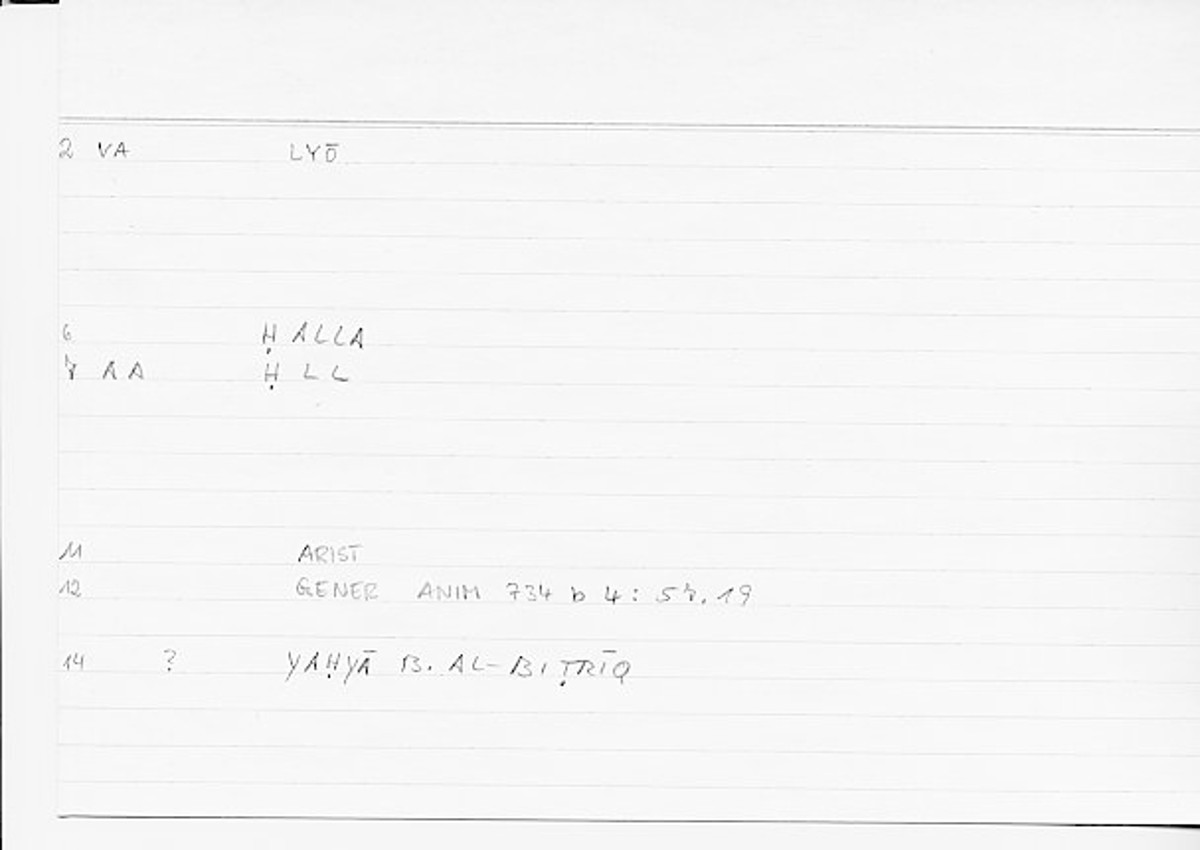 2 VA LYŌ
6 ḤALLA
7 AA ḤLL
11 ARIST
12 GENER ANIM 734 b 4: 57.19
14 ? YAḤYĀ B. AL-BIṬRĪQ